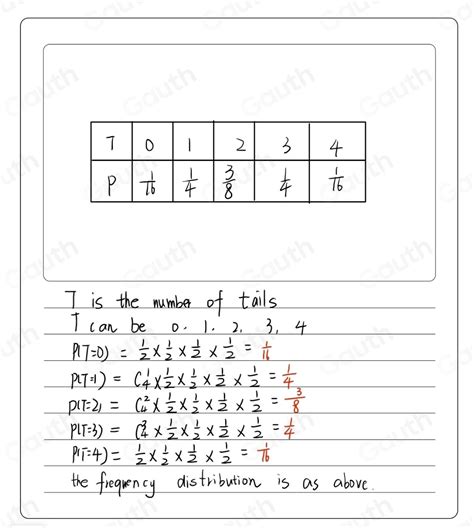 T 0 1 2 3 4
P 1/16 1/4 3/8 1/4 1/16
T is the number of tails
T can be 0. 1. 2. 3. 4
P(T=0) = 1/2 × 1/2 × 1/2 × 1/2 = 1/16
P(T=1) = C₄¹ × 1/2 × 1/2 × 1/2 × 1/2 = 1/4
P(T=2) = C₄² × 1/2 × 1/2 × 1/2 × 1/2 = 3/8
P(T=3) = C₄³ × 1/2 × 1/2 × 1/2 × 1/2 = 1/4
P(T=4) = 1/2 × 1/2 × 1/2 × 1/2 = 1/16
the frequency distribution is as above.
Gauth